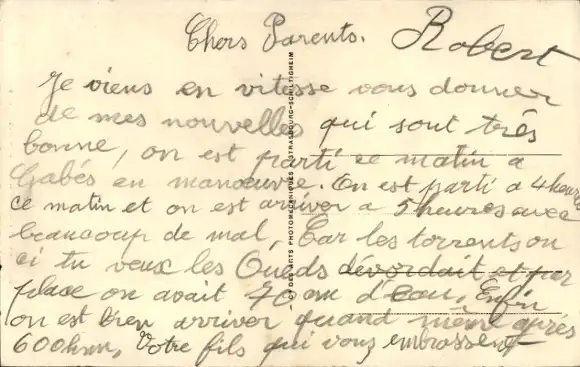 Chers Parents. Robert
Je viens en vitesse vous donner
de mes nouvelles qui sont très
bonne, on est parti ce matin a
Gabés en manœuvre. On est parti a 4 heures
ce matin et on est arriver a 5 heures avec
beaucoup de mal, Car les torrents ou
ci tu veux les Oueds dévordait et par
place on avait 70 cm d'eau. Enfin
on est bien arriver quand même après
600 km, Votre fils qui vous embrassent
PHOTOMECANIQUES STRASBOURG-SCHILTIGHEIM